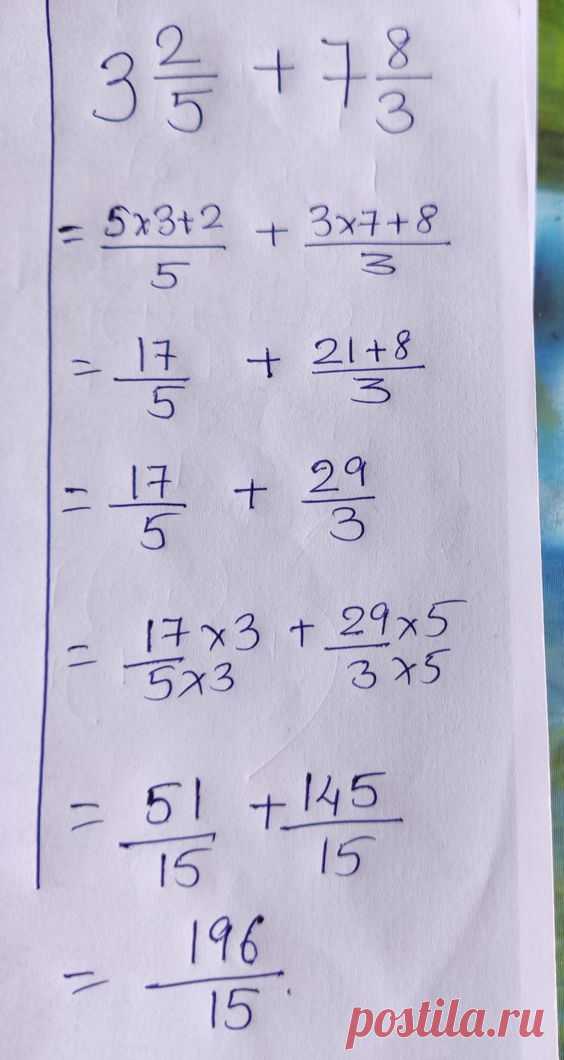 3 2/5 + 7 8/3
= 5x3+2/5 + 3x7+8/3
= 17/5 + 21+8/3
= 17/5 + 29/3
= 17x3/5x3 + 29x5/3x5
= 51/15 + 145/15
= 196/15.
postila.ru